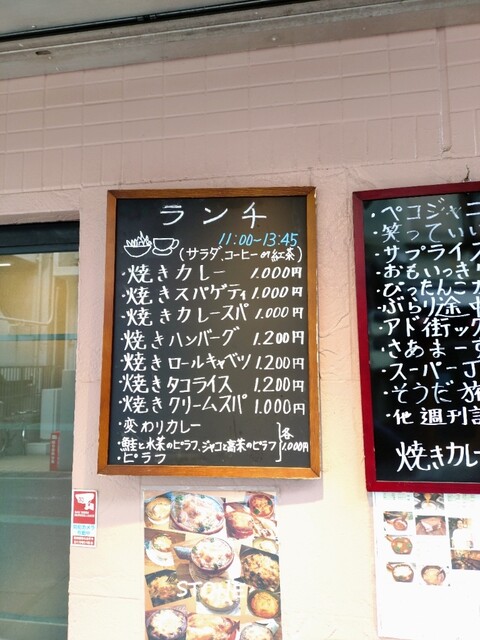 ランチ
11:00~13:45
(サラダ、コーヒー or 紅茶)
・焼きカレー 1.000円
・焼きスパゲティ 1.000円
・焼きカレースパ 1.000円
・焼きハンバーグ 1.200円
・焼きロールキャベツ 1.200円
・焼きタコライス 1.200円
・焼きクリームスパ 1.000円
・変わりカレー
・鮭と水菜のピラフ、ジャコと高菜のピラフ 各1.000円
・ピラフ
STONE
・ペコジャニ
・笑っていい
・サプライズ
・おもいっきり
・ぴったんこカ
・ぶらり途中
・アド街ック
・さあまーず
・スーパーJ
・そうだ旅
・他週刊誌
焼きカレー